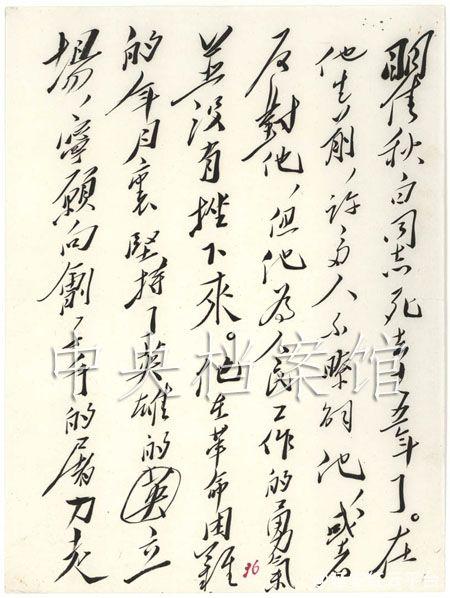 瞿秋白同志死去十五年了。在
他生前,許多人不瞭解他,或者
反對他,但他為人民工作的勇氣
並沒有挫下來。他在革命困難
的年月裏堅持了英雄的英立
場,寧願向劊子手的屠刀走
中央档案馆